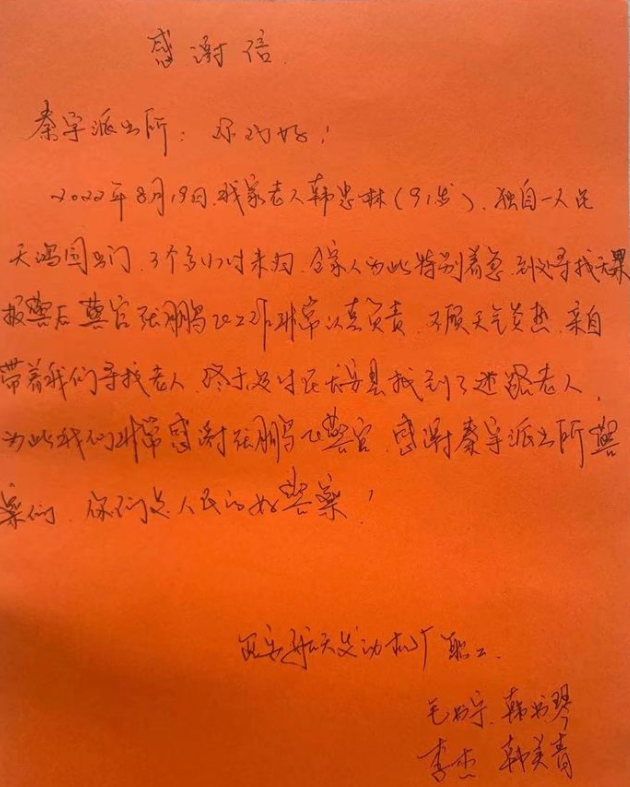 感谢信
秦宇派出所：你们好！
2022年8月19日,我家老人韩忠林(91岁),独自一人在
天鸿园出门,3个多小时未归,全家人为此特别着急,到处寻找无果
报警后警官张鹏飞工作非常认真负责,不顾天气炎热,亲自
带着我们寻找老人,终于及时在长安县找到了迷路老人,
为此我们非常感谢张鹏飞警官,感谢秦宇派出所警
察们,你们是人民的好警察!
西安航天发动机厂职工
毛书宁 韩书琴
李杰 韩美青